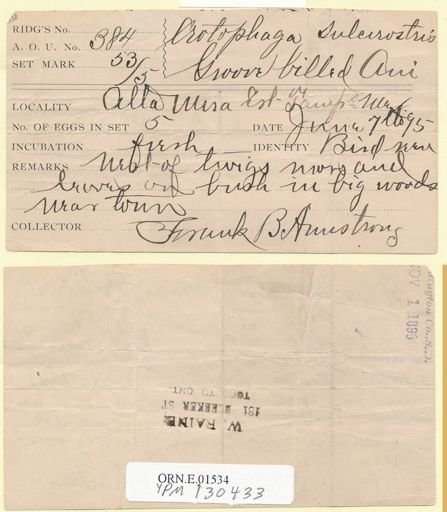 RIDG'S No.
A. O. U. No. 384
SET MARK 53/5
Crotophaga Sulcirostris
Groove billed Ani
LOCALITY Alta Mira Est. of Tamps Mex
No. OF EGGS IN SET 5 DATE June 7th 95
INCUBATION fresh IDENTITY Bird seen
REMARKS Nest of twigs moss and
leaves on bush in big woods
near town
COLLECTOR Frank B Armstrong
ington Co., R.I.
NOV 1 1895
W. RAINE
181 BLEEKER ST
TORONTO ONT
ORN.E.01534
YPM 130433